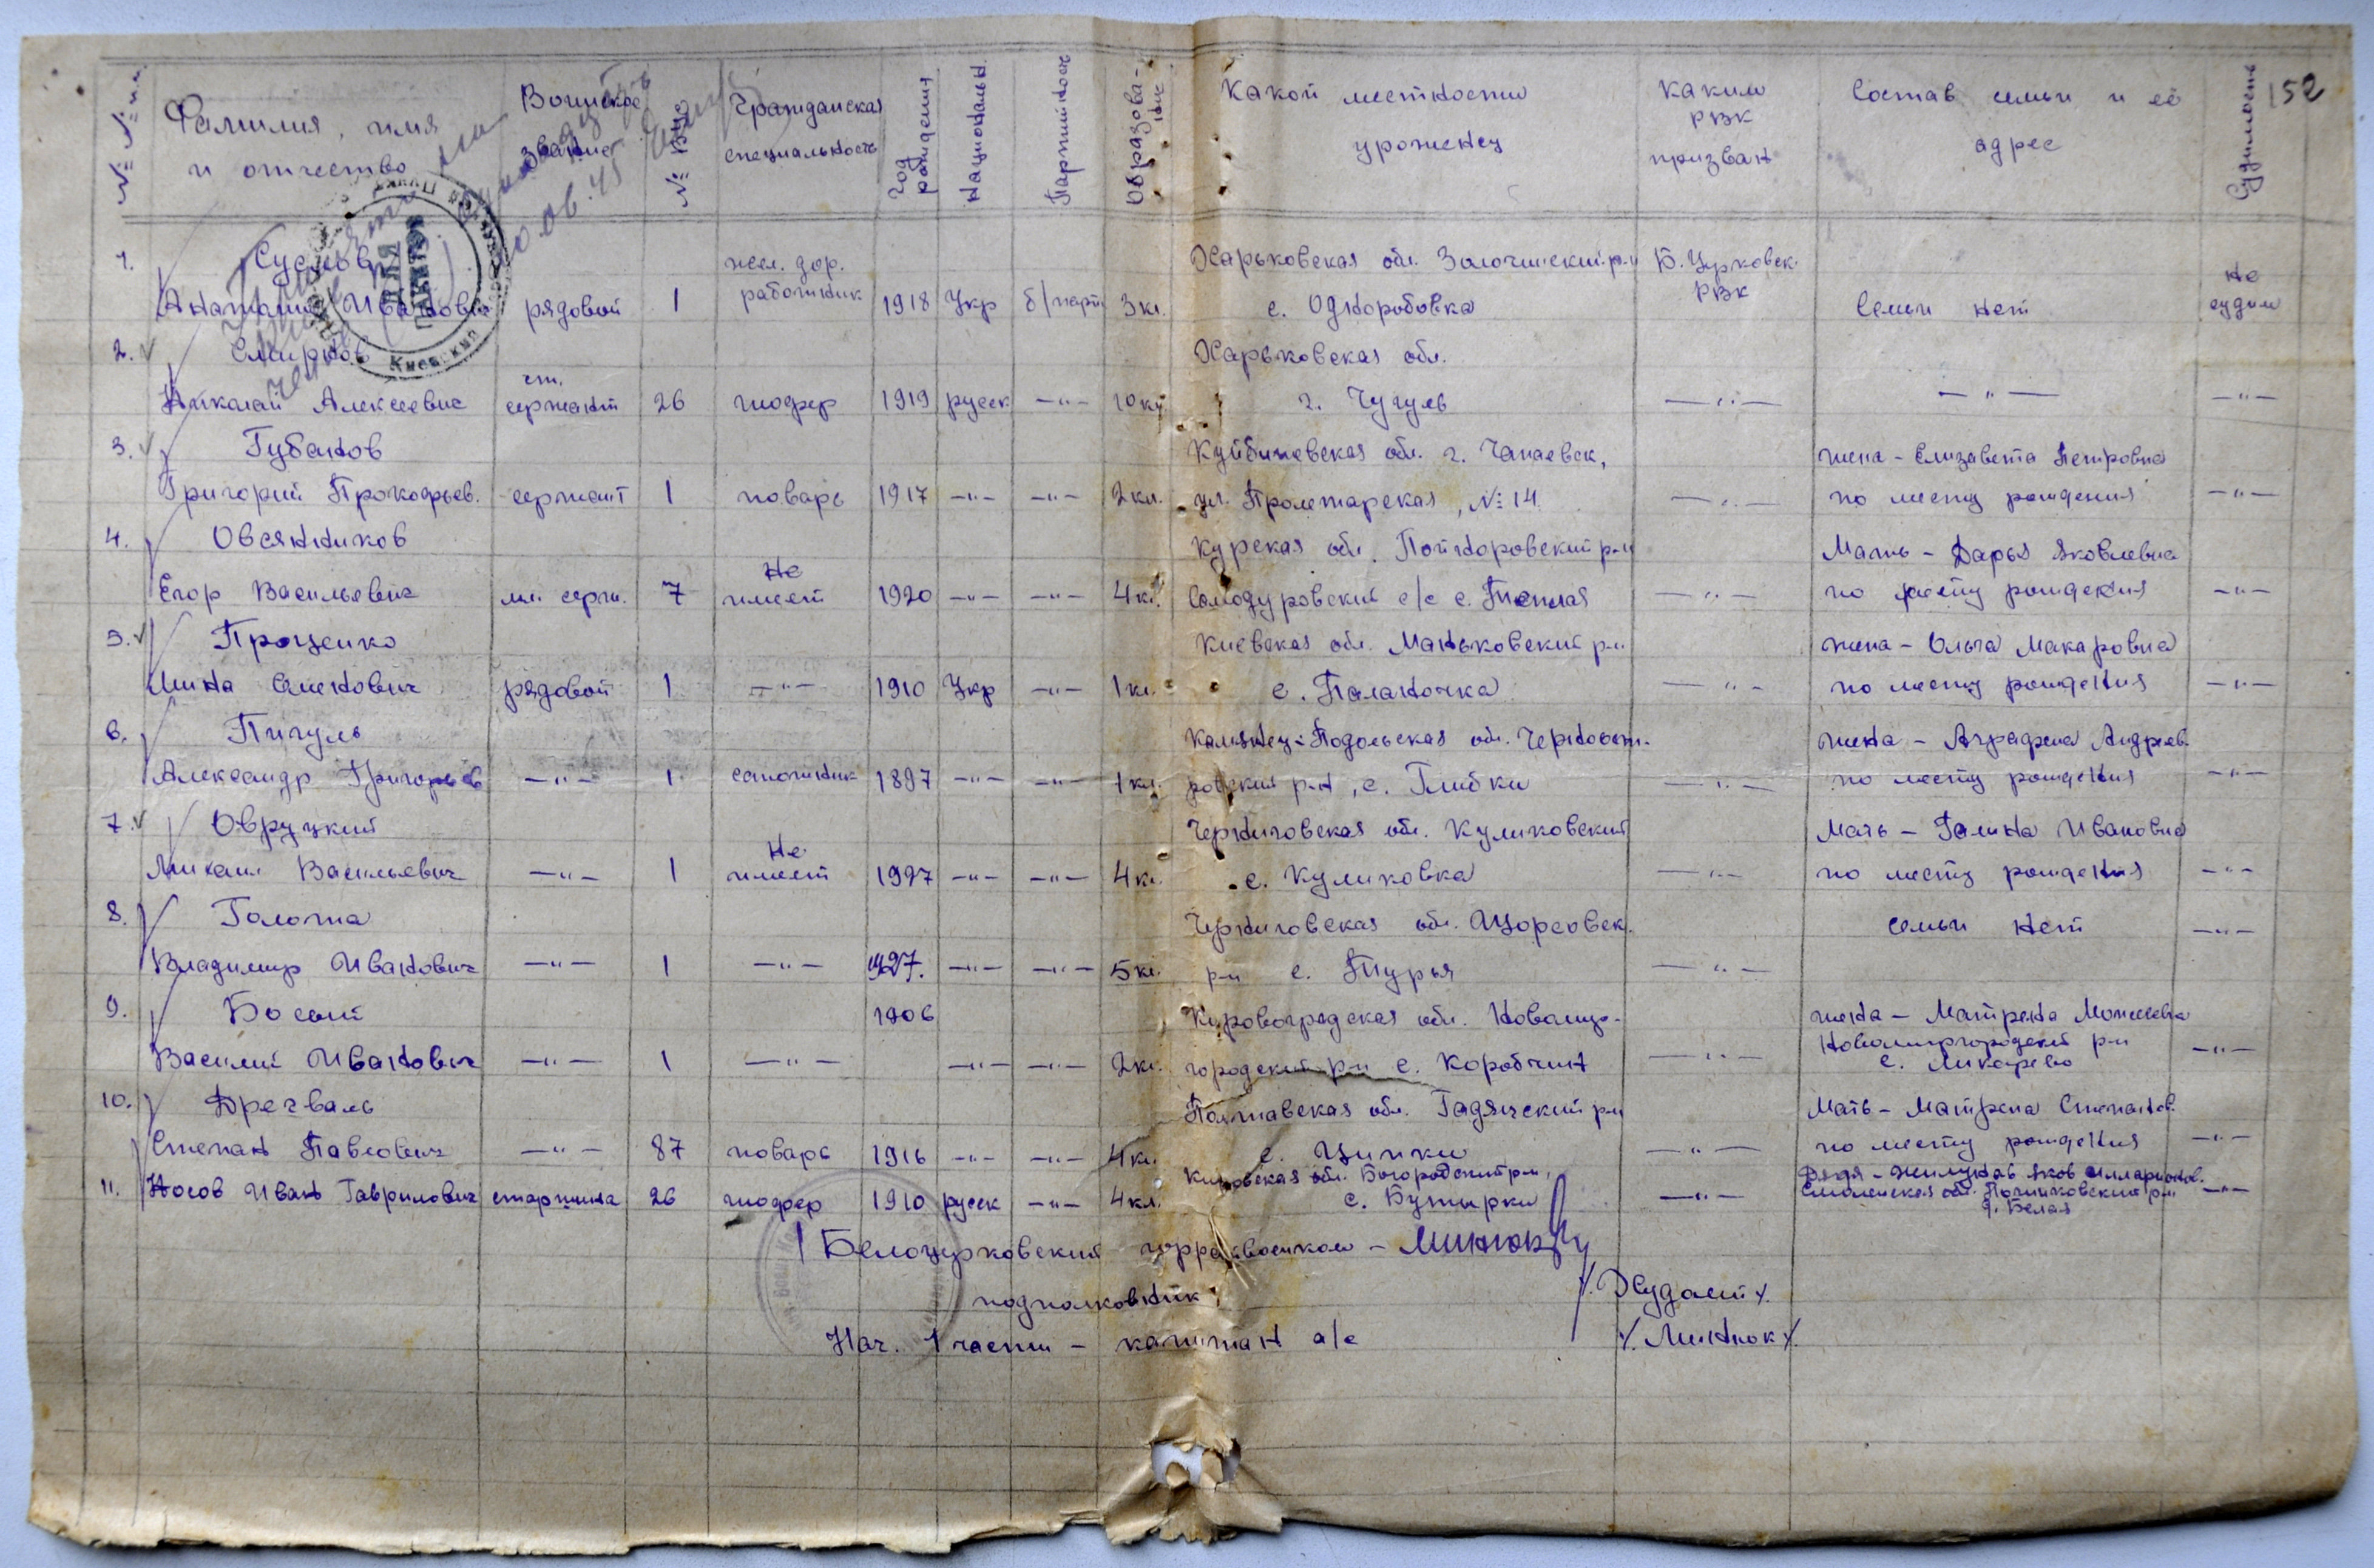 152
№№ п.п. Фамилия, имя и отчество Воинское звание № ВУС Гражданская специальность Год рождения Национальн. Партийность Образование Какой местности уроженец Каким РВК призван Состав семьи и её адрес Судимость
1. Суслов жел. дор. Харьковская обл. Золочевский р-н Б. Церковск. не
Анатолий Иванович рядовой 1 работник 1918 Укр б/парт 3 кл. с. Одноробовка РВК Семьи нет судим
2. Смирнов Харьковская обл.
Николай Алексеевич ст. сержант 26 шофер 1919 русск —"— 10 кл г. Чугуев —"— —"— —"—
3. Губанов Куйбишевская обл. г. Чапаевск, жена – Елизавета Петровна
Григорий Прокофьев. сержант 1 поварь 1917 —"— —"— 2 кл. ул. Пролетарская, № 14 —"— по месту рождения —"—
4. Овсянников Курская обл. р-н Мать – Дарья Яковлевна
Егор Васильевич мл. серж. 7 Не имеет 1920 —"— —"— 4 кл. Самодуровский с/с с. Теплая —"— по месту рождения —"—
5. Проценко Киевская обл. Маньковский р-н жена – Ольга Макаровна
Мина Семенович рядовой 1 —"— 1910 Укр —"— 1 кл. с. Паланочка —"— по месту рождения —"—
6. Пигуль Камянец-Подольская обл. Черноост- жена – Аграфена Андреев.
Александр Григорьев —"— 1 сапожник 1897 —"— —"— 1 кл. ровский р-н, с. Глибки —"— по месту рождения —"—
7. Овруцкий Черниговская обл. Куликовский Мать – Галина Ивановна
Михаил Васильевич —"— 1 Не имеет 1927 —"— —"— 4 кл. с. Куликовка —"— по месту рождения —"—
8. Голота Черниговская обл. Щорсовск. семьи нет —"—
Владимир Иванович —"— 1 —"— 1927. —"— —"— 5 кл. р-н с. Турья —"—
9. Босый 1906 Кировоградская обл. Новомир- жена – Матрена Моисеевна
Василий Иванович —"— 1 —"— —"— —"— 2 кл. городский р-н с. Коробчин —"— Новомиргородский р-н —"—
с. Ликарево
10. Дрегваль Полтавская обл. Гадячский р-н Мать – Матрена Степанов.
Степан Павлович —"— 87 поварь 1916 —"— —"— 4 кл. с. Ципки —"— по месту рождения —"—
Кировская обл. Богородский р-н, Дядя – Яков Илларионов.
11. Носов Иван Гаврилович старшина 26 шофер 1910 русск —"— 4 кл. с. Бутырки —"— Смоленская обл. Починковский р-н —"—
д. Белая
Белоцерковский горрайвоенком –
подполковник /. Худолей /.
Нач. 1 части – капитан а/с /. Минюк /.